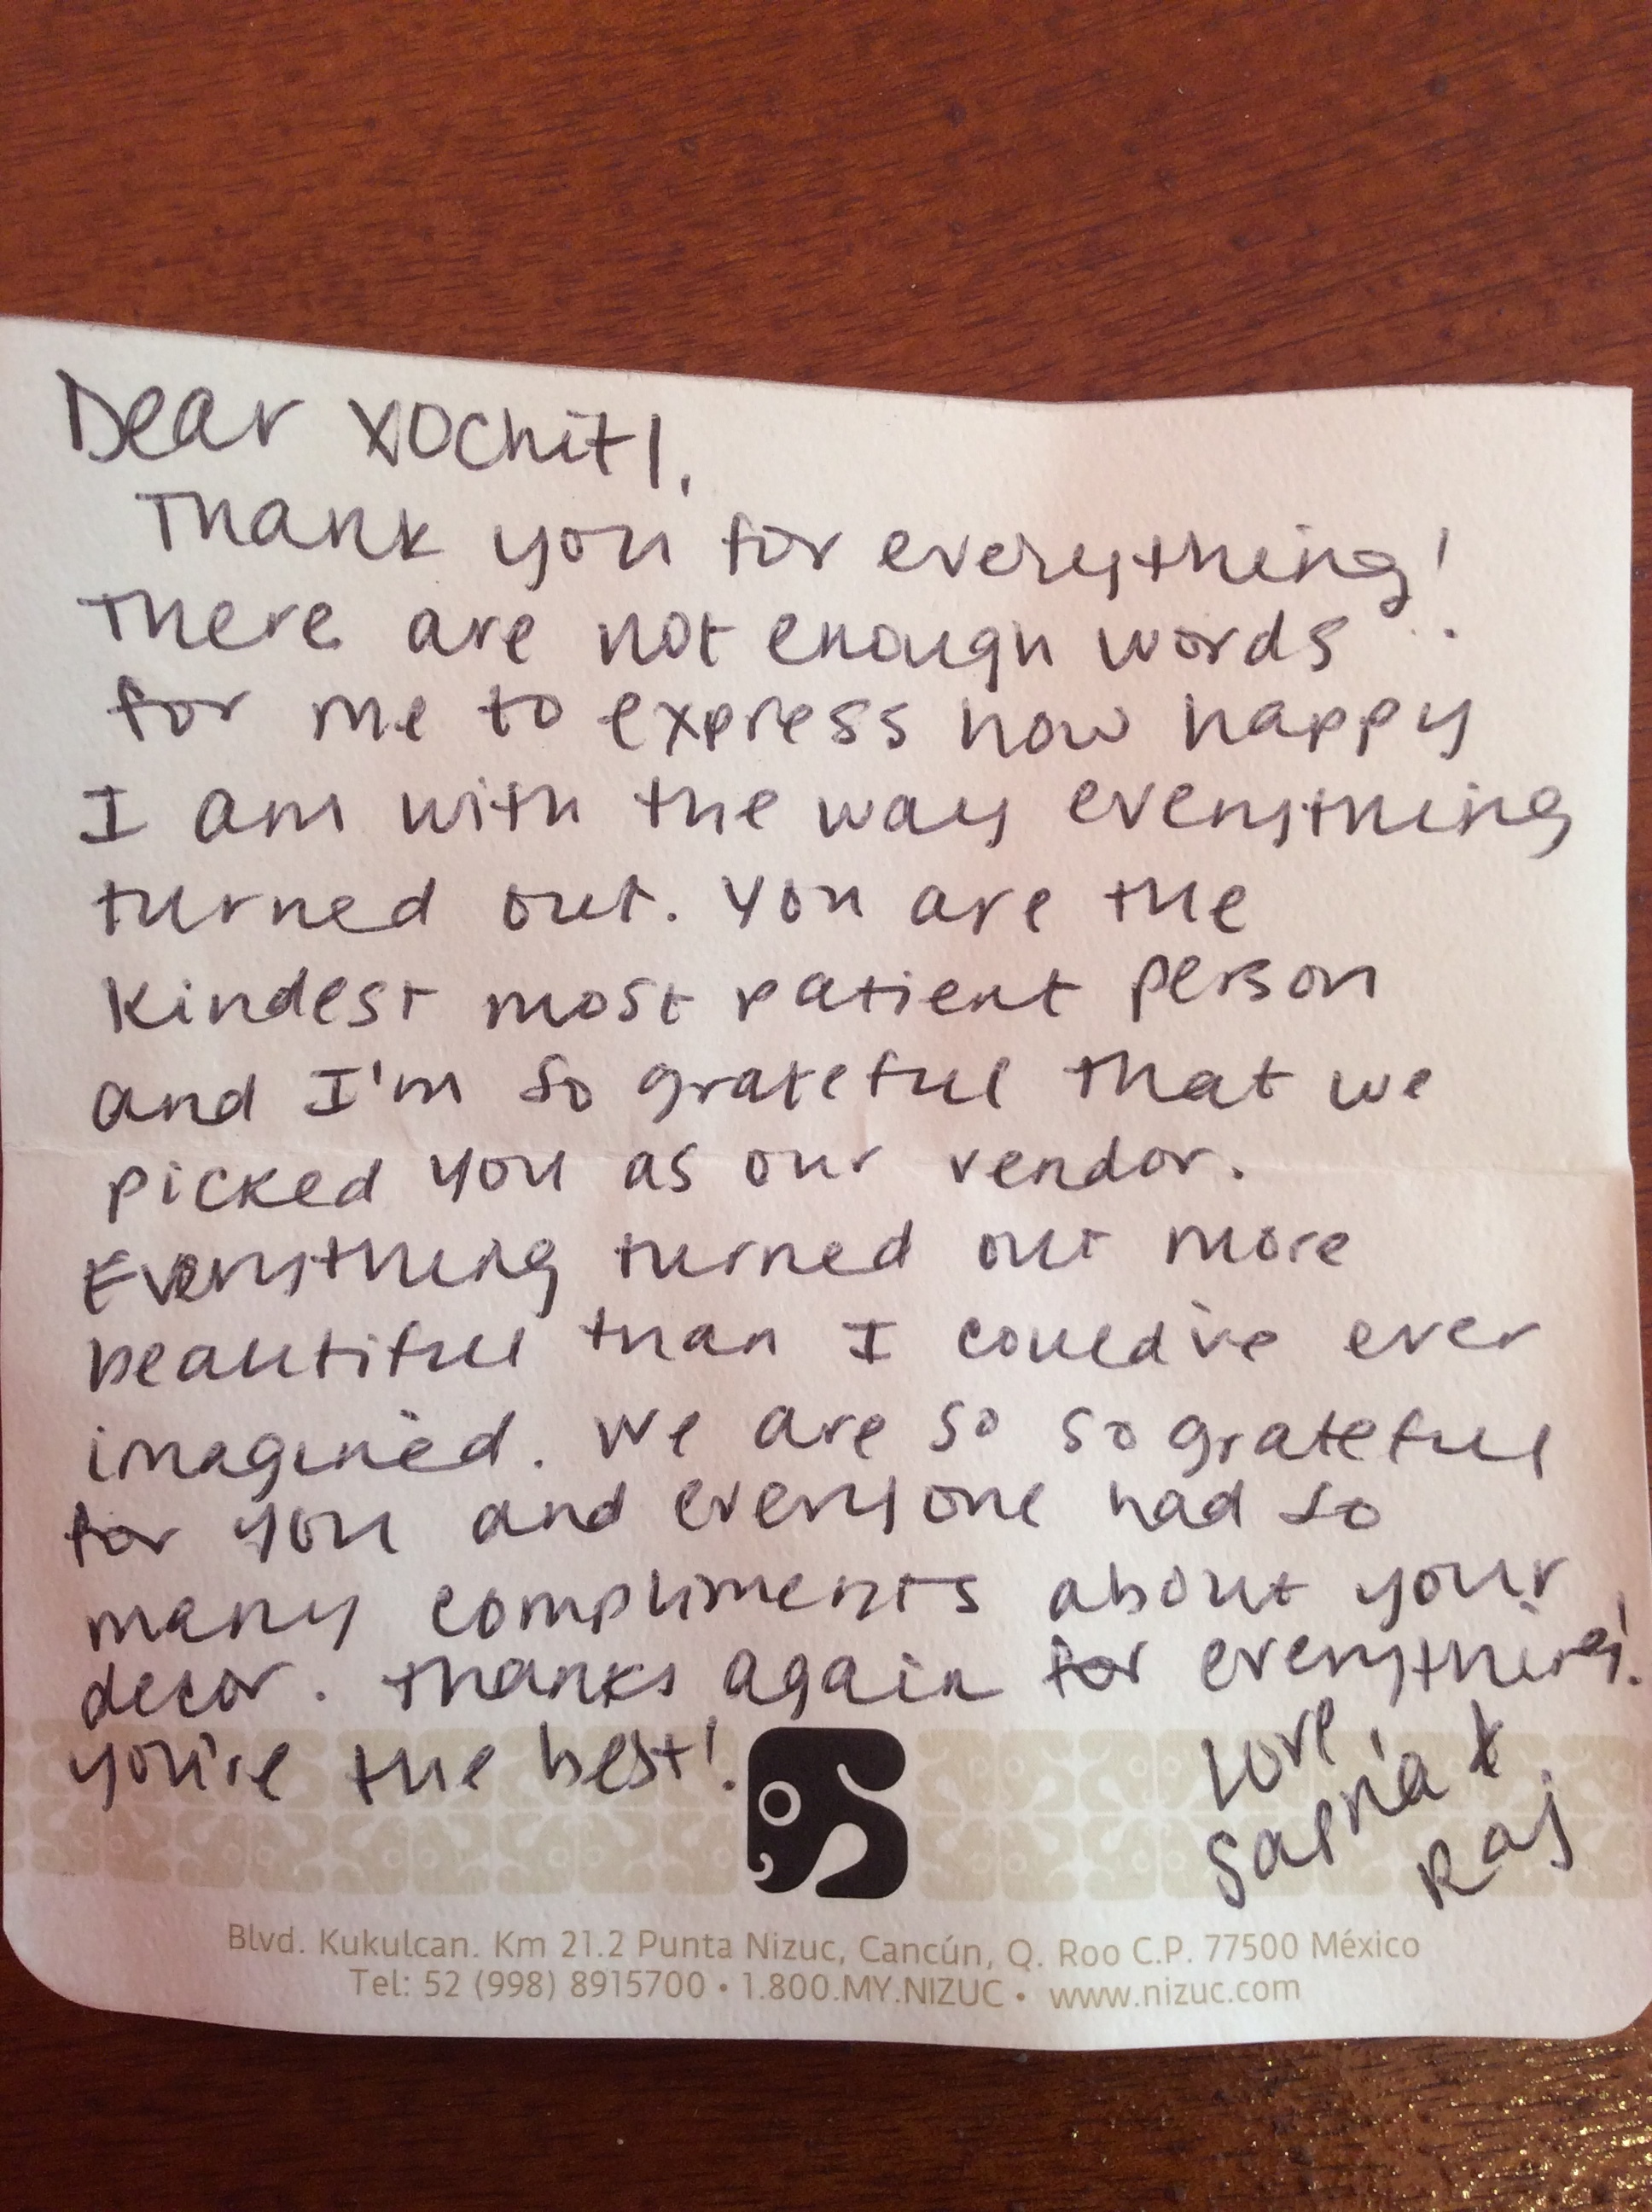 Dear Xochitl,
Thank you for everything!
There are not enough words
for me to express how happy
I am with the way everything
turned out. You are the
kindest most patient person
and I'm so grateful that we
picked you as our vendor.
Everything turned out more
beautiful than I could've ever
imagined. We are so so grateful
for you and everyone had so
many compliments about your
decor. Thanks again for everything!
you're the best!
Love,
&
Raj
Blvd. Kukulcan. Km 21.2 Punta Nizuc, Cancún, Q. Roo C.P. 77500 México
Tel: 52 (998) 8915700 • 1.800.MY.NIZUC • www.nizuc.com